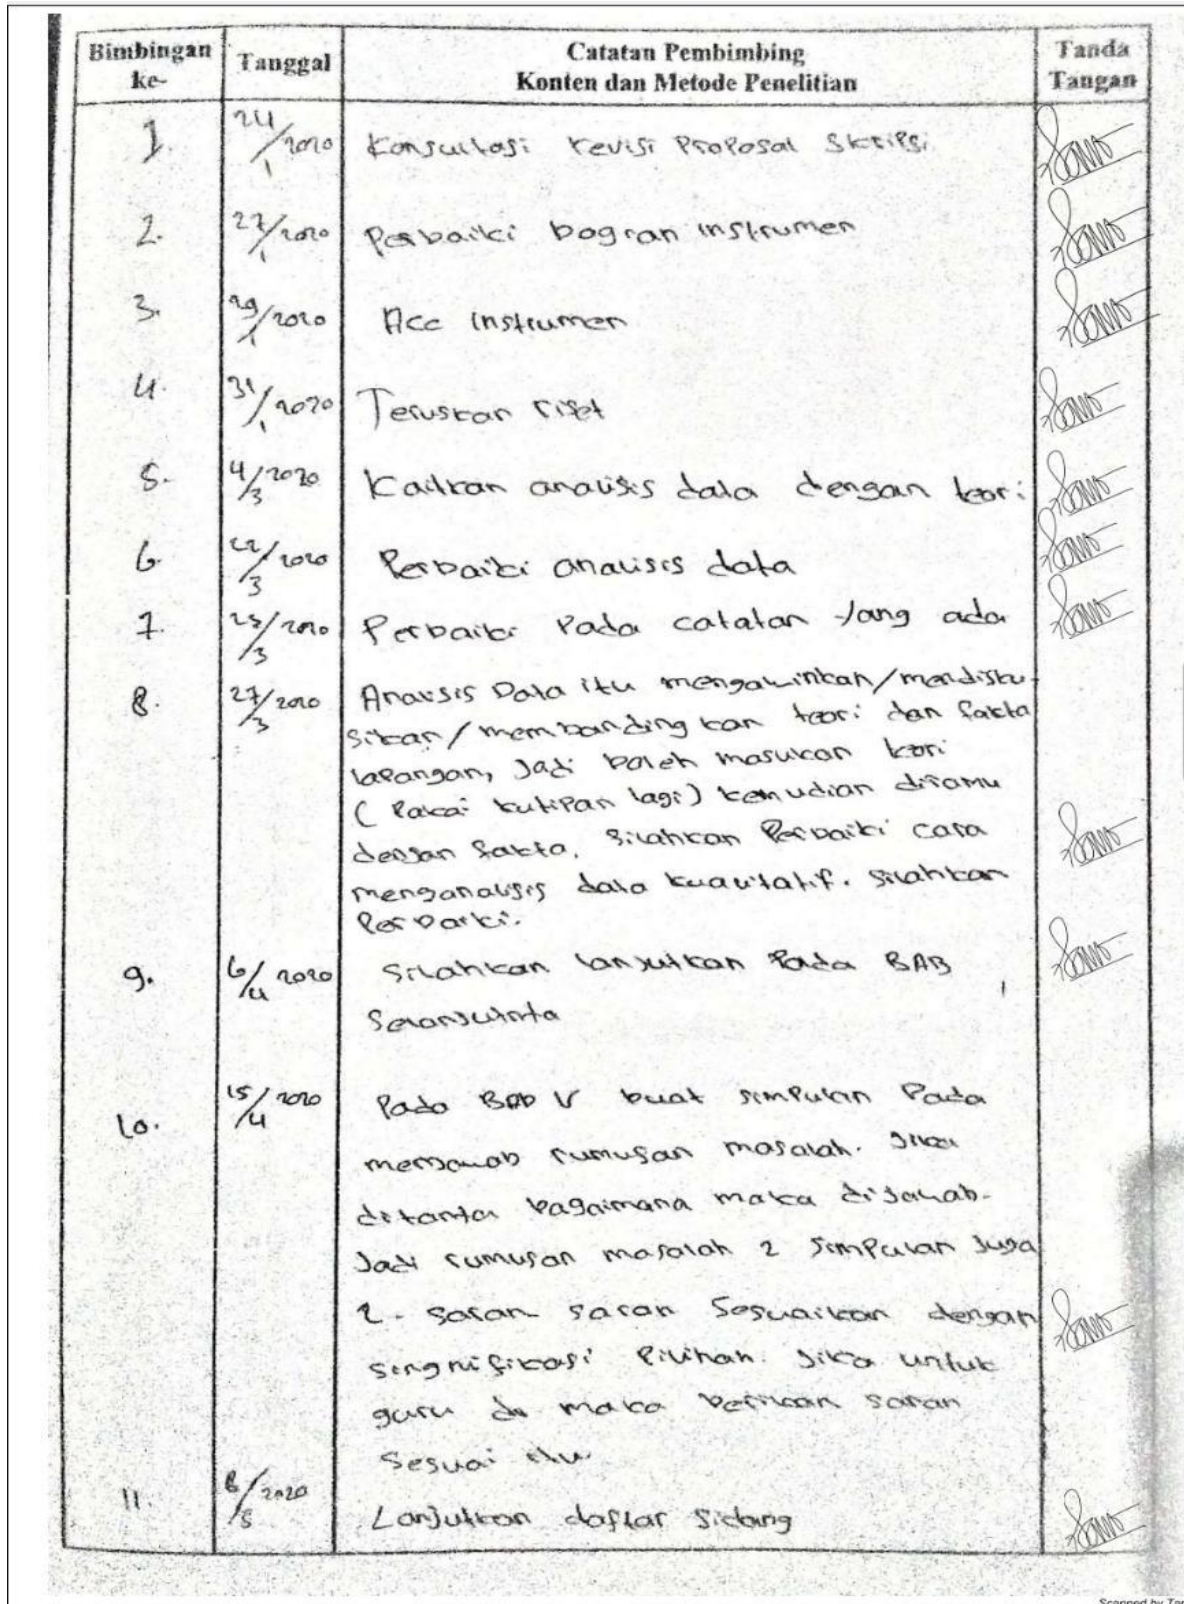 Bimbingan ke- Tanggal Catatan Pembimbing Konten dan Metode Penelitian Tanda Tangan
1. 24/1 2020 Konsultasi revisi Proposal Skripsi
2. 27/1 2020 Perbaiki bagian instrumen
3. 29/1 2020 Acc instrumen
4. 31/1 2020 Teruskan riset
5. 4/3 2020 Kaitkan analisis data dengan teori
6. 22/3 2020 Perbaiki analisis data
7. 25/3 2020 Perbaiki Pada catatan yang ada
8. 27/3 2020 Analisis Data itu mengawinkan/mendisku-
sikan/membandingkan teori dan fakta
lapangan, Jadi boleh masukan teori
(Pakai kutipan lagi) kemudian diramu
dengan fakta. Silahkan Perbaiki cara
menganalisis data kualitatif. Silahkan
Perbaiki.
9. 6/4 2020 Silahkan lanjutkan Pada BAB
Selanjutnta
10. 15/4 2020 Pada BAB V buat simpulan Pada
menjawab rumusan masalah. Jika
ditanta bagaimana maka dijawab.
Jadi rumusan masalah 2 simpulan Juga
2. saran-saran Sesuaikan dengan
singnifikasi Pilihan. Jika untuk
guru maka berikan saran
Sesuai itu
11. 8/5 2020 Lanjutkan daftar Sidang
Scanned by